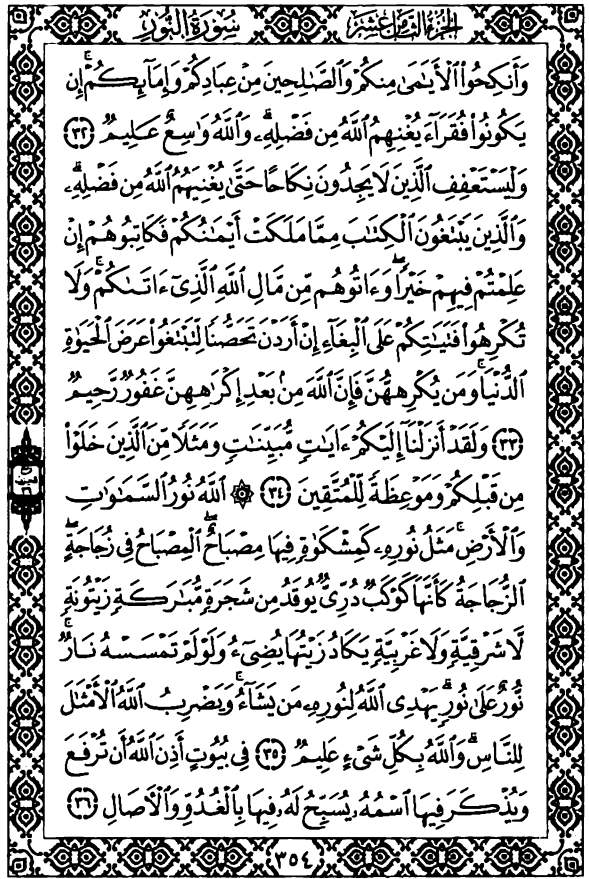 الجزء الثامن عشر سورة النور
وَأَنكِحُوا۟ ٱلْأَيَـٰمَىٰ مِنكُمْ وَٱلصَّـٰلِحِينَ مِنْ عِبَادِكُمْ وَإِمَآئِكُمْ ۚ إِن
يَكُونُوا۟ فُقَرَآءَ يُغْنِهِمُ ٱللَّهُ مِن فَضْلِهِۦ ۗ وَٱللَّهُ وَٰسِعٌ عَلِيمٌ ﴿٣٢﴾
وَلْيَسْتَعْفِفِ ٱلَّذِينَ لَا يَجِدُونَ نِكَاحًا حَتَّىٰ يُغْنِيَهُمُ ٱللَّهُ مِن فَضْلِهِۦ ۗ
وَٱلَّذِينَ يَبْتَغُونَ ٱلْكِتَـٰبَ مِمَّا مَلَكَتْ أَيْمَـٰنُكُمْ فَكَاتِبُوهُمْ إِنْ
عَلِمْتُمْ فِيهِمْ خَيْرًا ۖ وَءَاتُوهُم مِّن مَّالِ ٱللَّهِ ٱلَّذِىٓ ءَاتَىٰكُمْ ۚ وَلَا
تُكْرِهُوا۟ فَتَيَـٰتِكُمْ عَلَى ٱلْبِغَآءِ إِنْ أَرَدْنَ تَحَصُّنًا لِّتَبْتَغُوا۟ عَرَضَ ٱلْحَيَوٰةِ
ٱلدُّنْيَا ۚ وَمَن يُكْرِههُّنَّ فَإِنَّ ٱللَّهَ مِنۢ بَعْدِ إِكْرَٰهِهِنَّ غَفُورٌ رَّحِيمٌ
﴿٣٣﴾ وَلَقَدْ أَنزَلْنَآ إِلَيْكُمْ ءَايَـٰتٍ مُّبَيِّنَـٰتٍ وَمَثَلًا مِّنَ ٱلَّذِينَ خَلَوْا۟
مِن قَبْلِكُمْ وَمَوْعِظَةً لِّلْمُتَّقِينَ ﴿٣٤﴾ ۞ ٱللَّهُ نُورُ ٱلسَّمَـٰوَٰتِ
وَٱلْأَرْضِ ۚ مَثَلُ نُورِهِۦ كَمِشْكَوٰةٍ فِيهَا مِصْبَاحٌ ۖ ٱلْمِصْبَاحُ فِى زُجَاجَةٍ ۖ
ٱلزُّجَاجَةُ كَأَنَّهَا كَوْكَبٌ دُرِّىٌّ يُوقَدُ مِن شَجَرَةٍ مُّبَـٰرَكَةٍ زَيْتُونَةٍ
لَّا شَرْقِيَّةٍ وَلَا غَرْبِيَّةٍ يَكَادُ زَيْتُهَا يُضِىٓءُ وَلَوْ لَمْ تَمْسَسْهُ نَارٌ ۚ
نُّورٌ عَلَىٰ نُورٍ ۗ يَهْدِى ٱللَّهُ لِنُورِهِۦ مَن يَشَآءُ ۚ وَيَضْرِبُ ٱللَّهُ ٱلْأَمْثَـٰلَ
لِلنَّاسِ ۗ وَٱللَّهُ بِكُلِّ شَىْءٍ عَلِيمٌ ﴿٣٥﴾ فِى بُيُوتٍ أَذِنَ ٱللَّهُ أَن تُرْفَعَ
وَيُذْكَرَ فِيهَا ٱسْمُهُۥ يُسَبِّحُ لَهُۥ فِيهَا بِٱلْغُدُوِّ وَٱلْـَٔاصَالِ ﴿٣٦﴾
٣٥٤